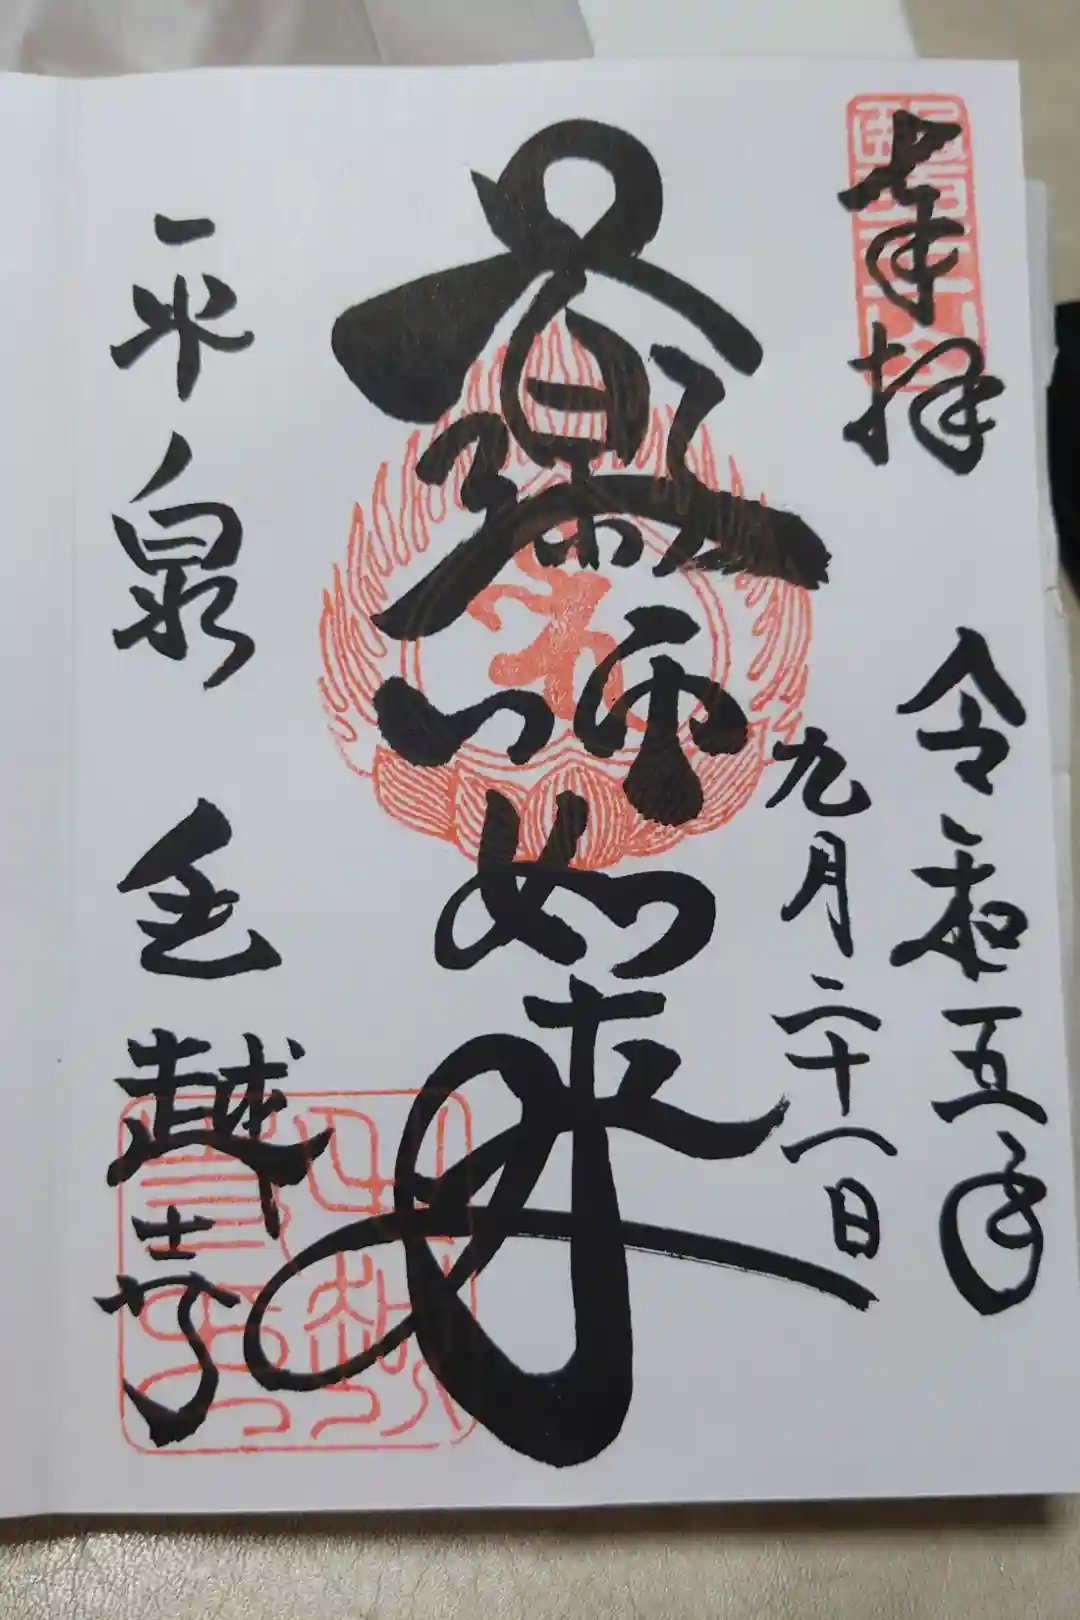 奉拝
令和五年
九月二十八日
薬師如来
平泉
毛越寺